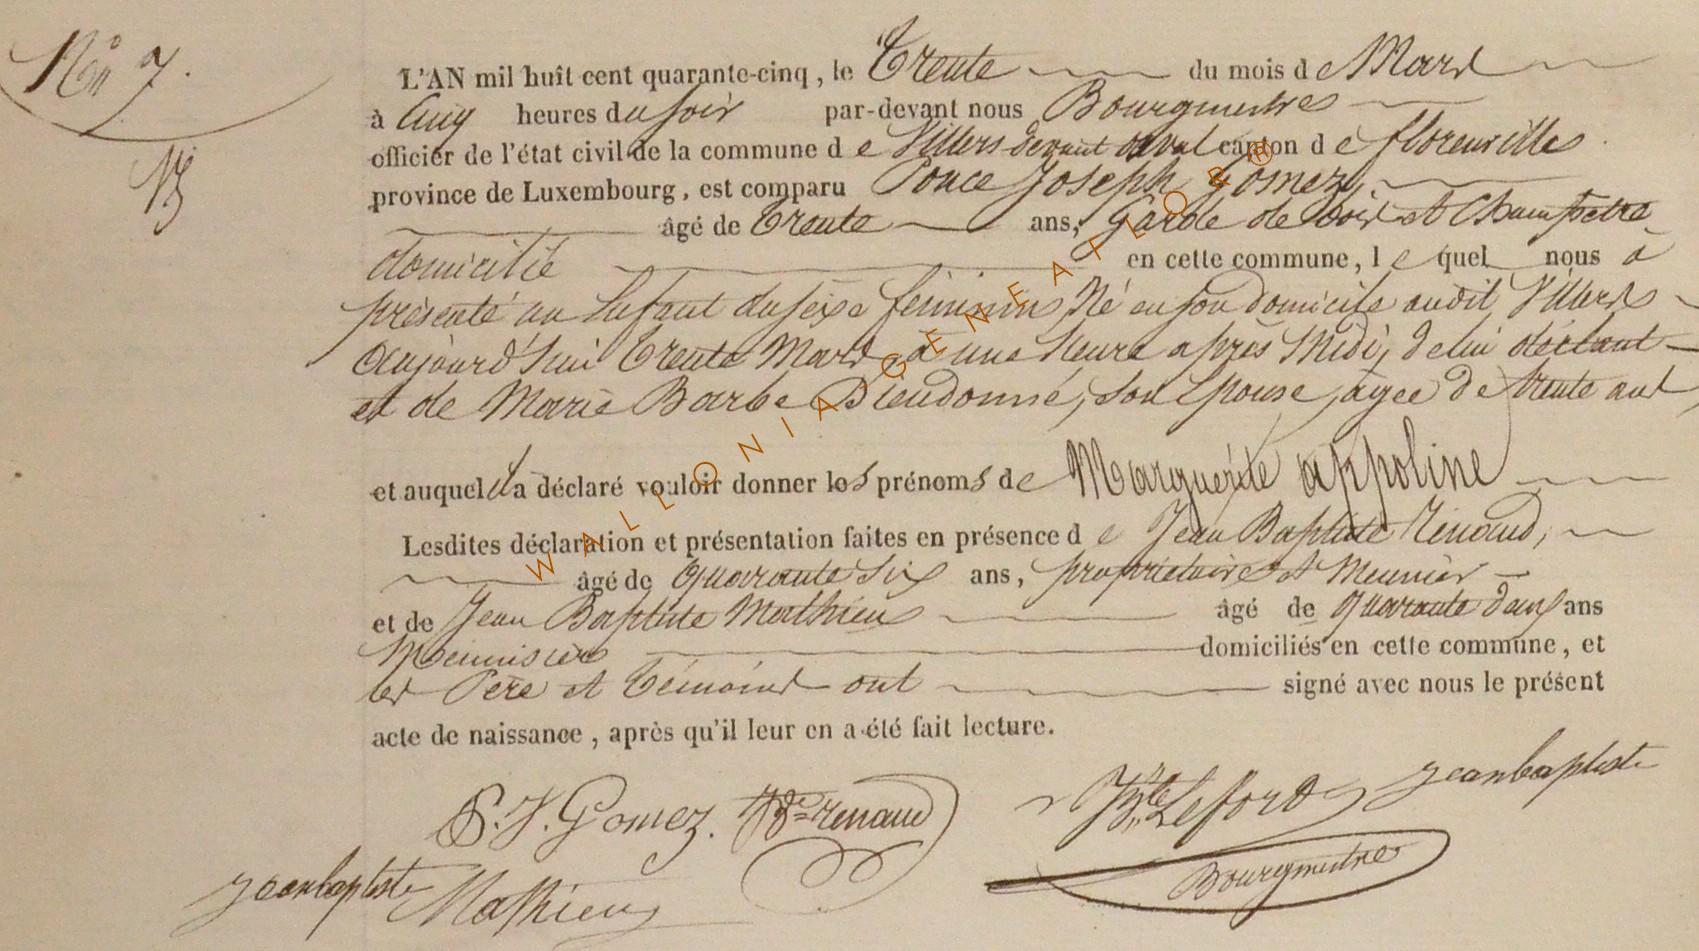 N° 7.
L'AN mil huît cent quarante-cinq, le Trente du mois de Mars
à Cinq heures du soir par-devant nous Bourgmestre
officier de l'état civil de la commune de Villers devant orval canton de florenville
province de Luxembourg, est comparu Ponce Joseph Gomez,
âgé de trente ans, Garde de bois et Champetre
domicilié en cette commune, lequel nous à
présenté un Enfant du sexe féminin, Né en son domicile audit Villers
Aujourd'hui trente Mars, à une heure après Midi, de lui déclarant
et de Marie Barbe Dieudonné, son Epouse, agée de trente ans,
et auquel il a déclaré vouloir donner les prénoms de Marguerite appoline
Lesdites déclaration et présentation faites en présence de Jean Baptiste Renaud,
âgé de Quarante six ans, propriétaire et Meunier
et de Jean Baptiste Mathieu âgé de Quarante deux ans
Menuisier domiciliés en cette commune, et
les Père et témoins ont signé avec nous le présent
acte de naissance, après qu'il leur en a été fait lecture.
P. J. Gomez. JBte renaud JBte Lefort jeanbaptiste
jeanbaptiste Mathieu Bourgmestre
WALLONIA GENEALO & ®